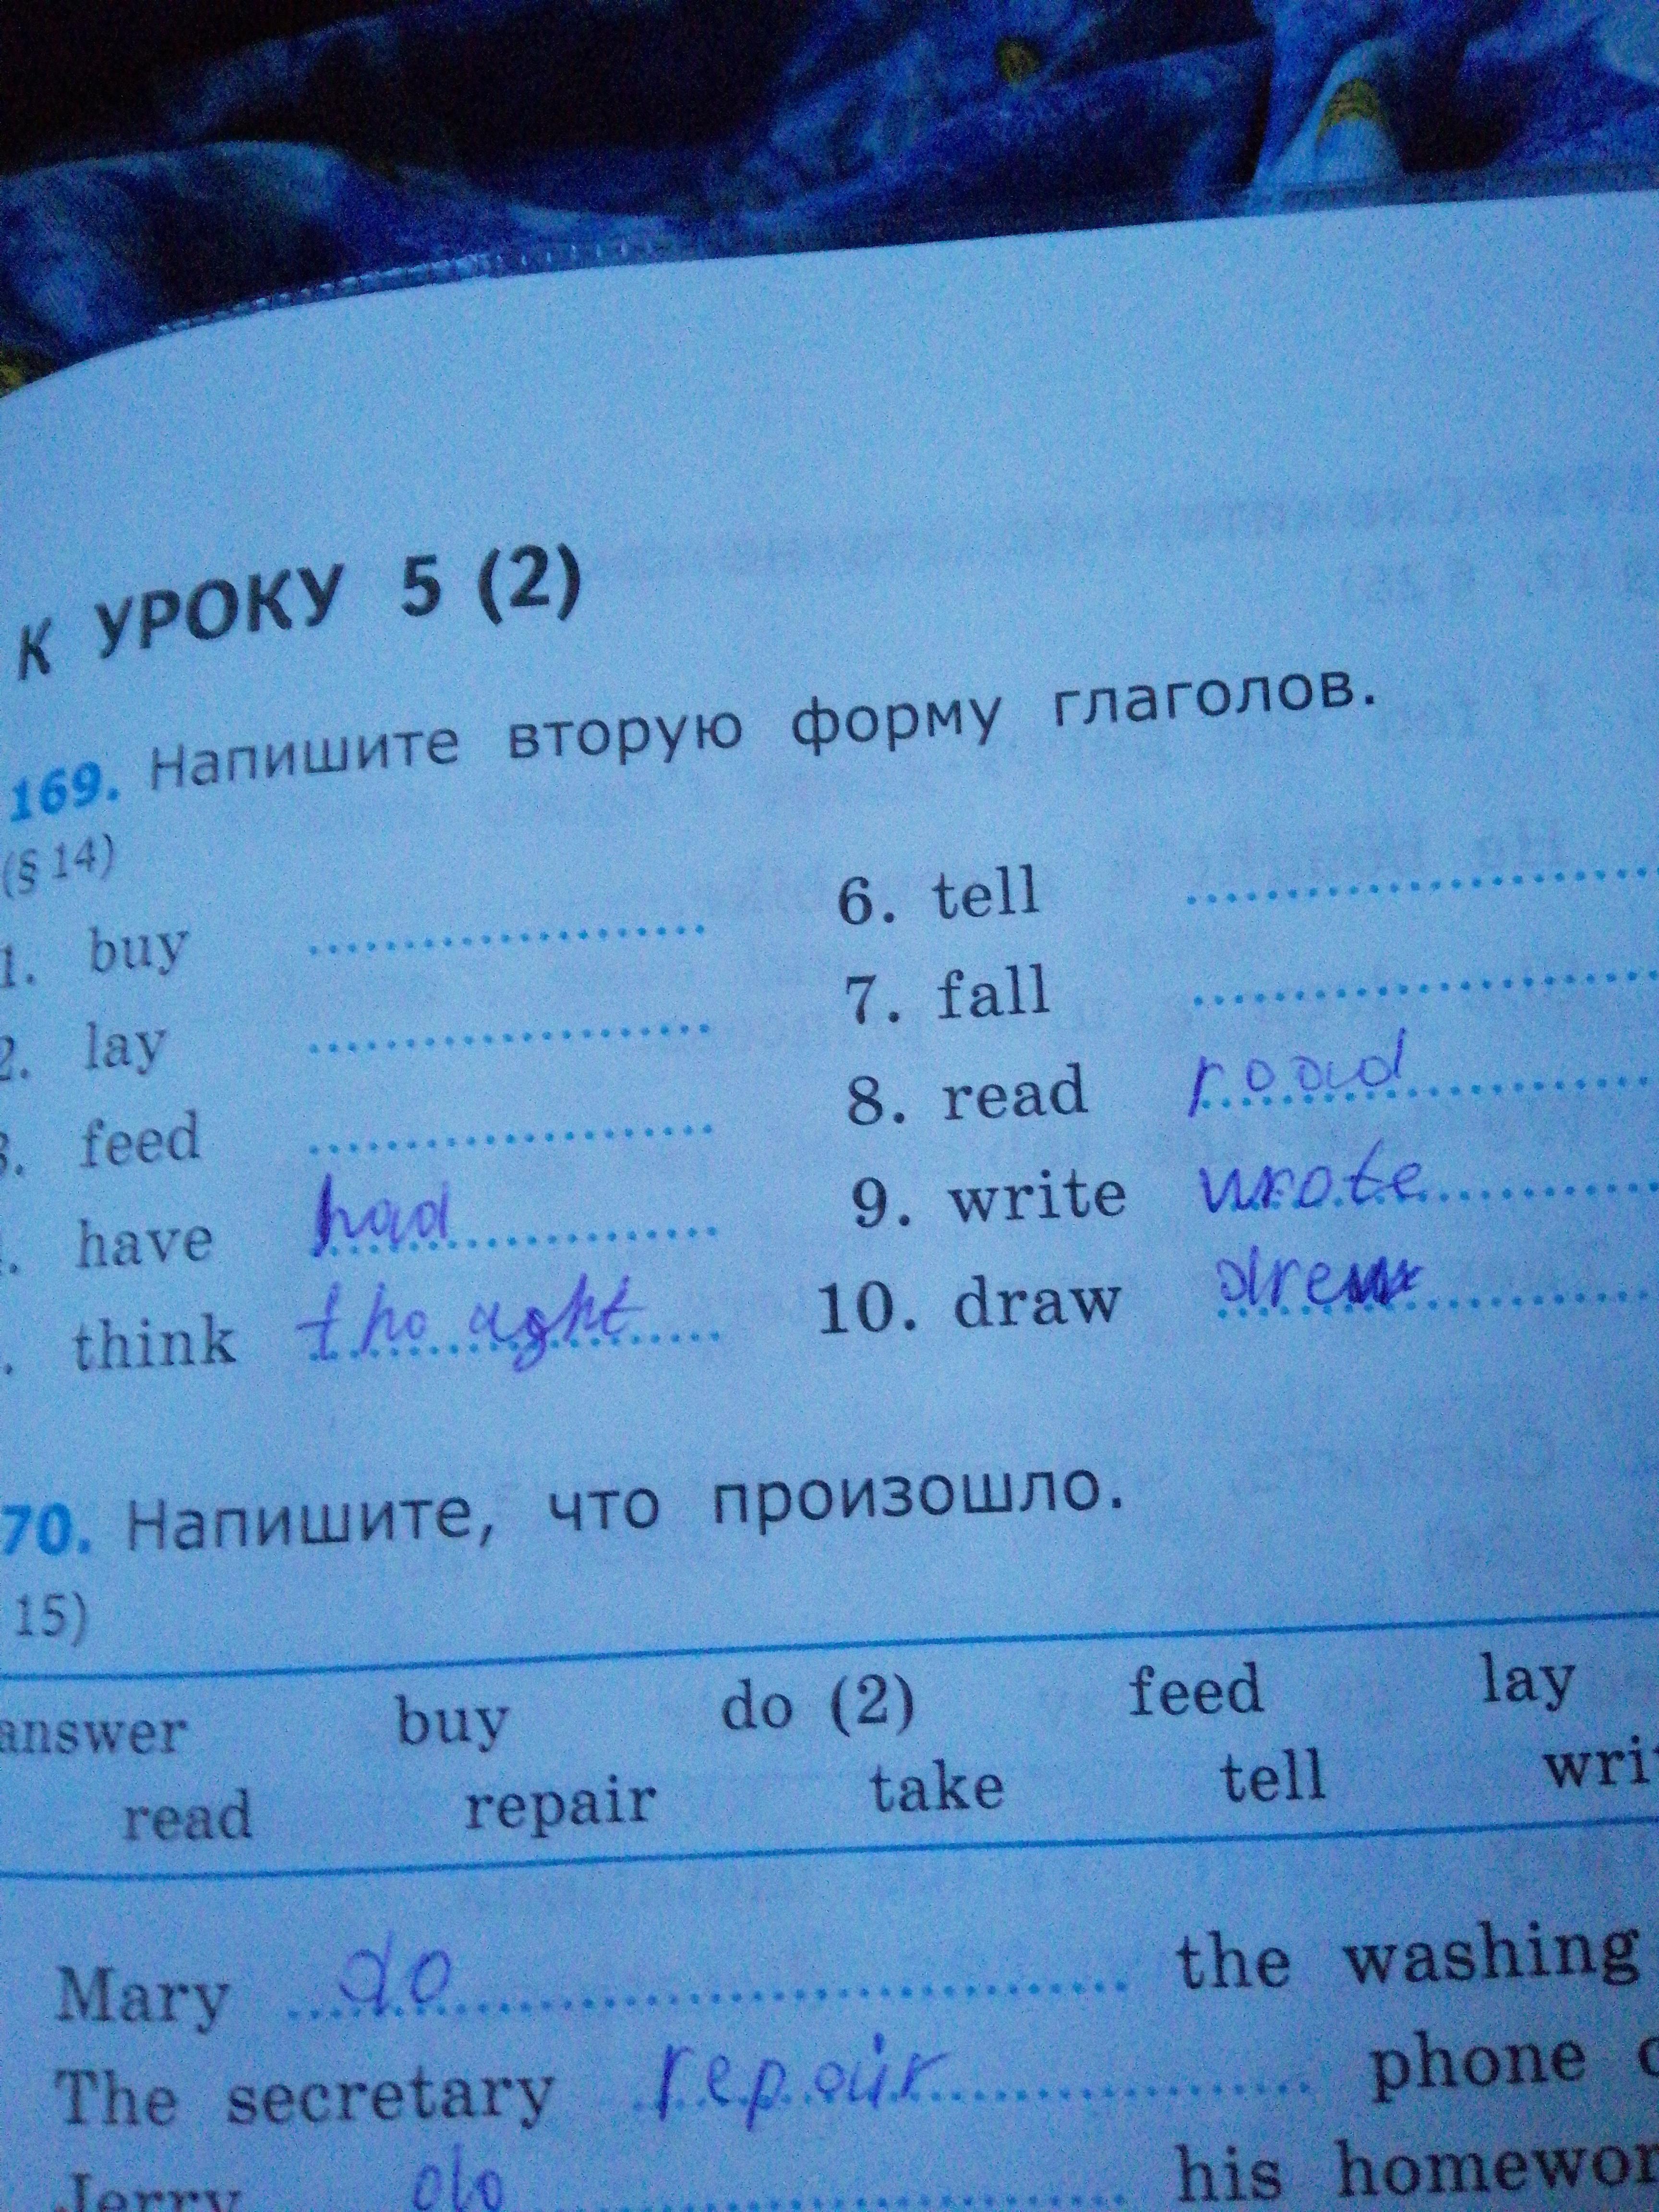 К УРОКУ 5 (2)
169. Напишите вторую форму глаголов.
(§ 14)
1. buy ........ 6. tell ........
2. lay ........ 7. fall ........
3. feed ........ 8. read road
. have had 9. write wrote
. think thought 10. draw drew
70. Напишите, что произошло.
15)
answer buy do (2) feed lay
read repair take tell writ
Mary do the washing
The secretary repair phone c
Jerry do his homewor